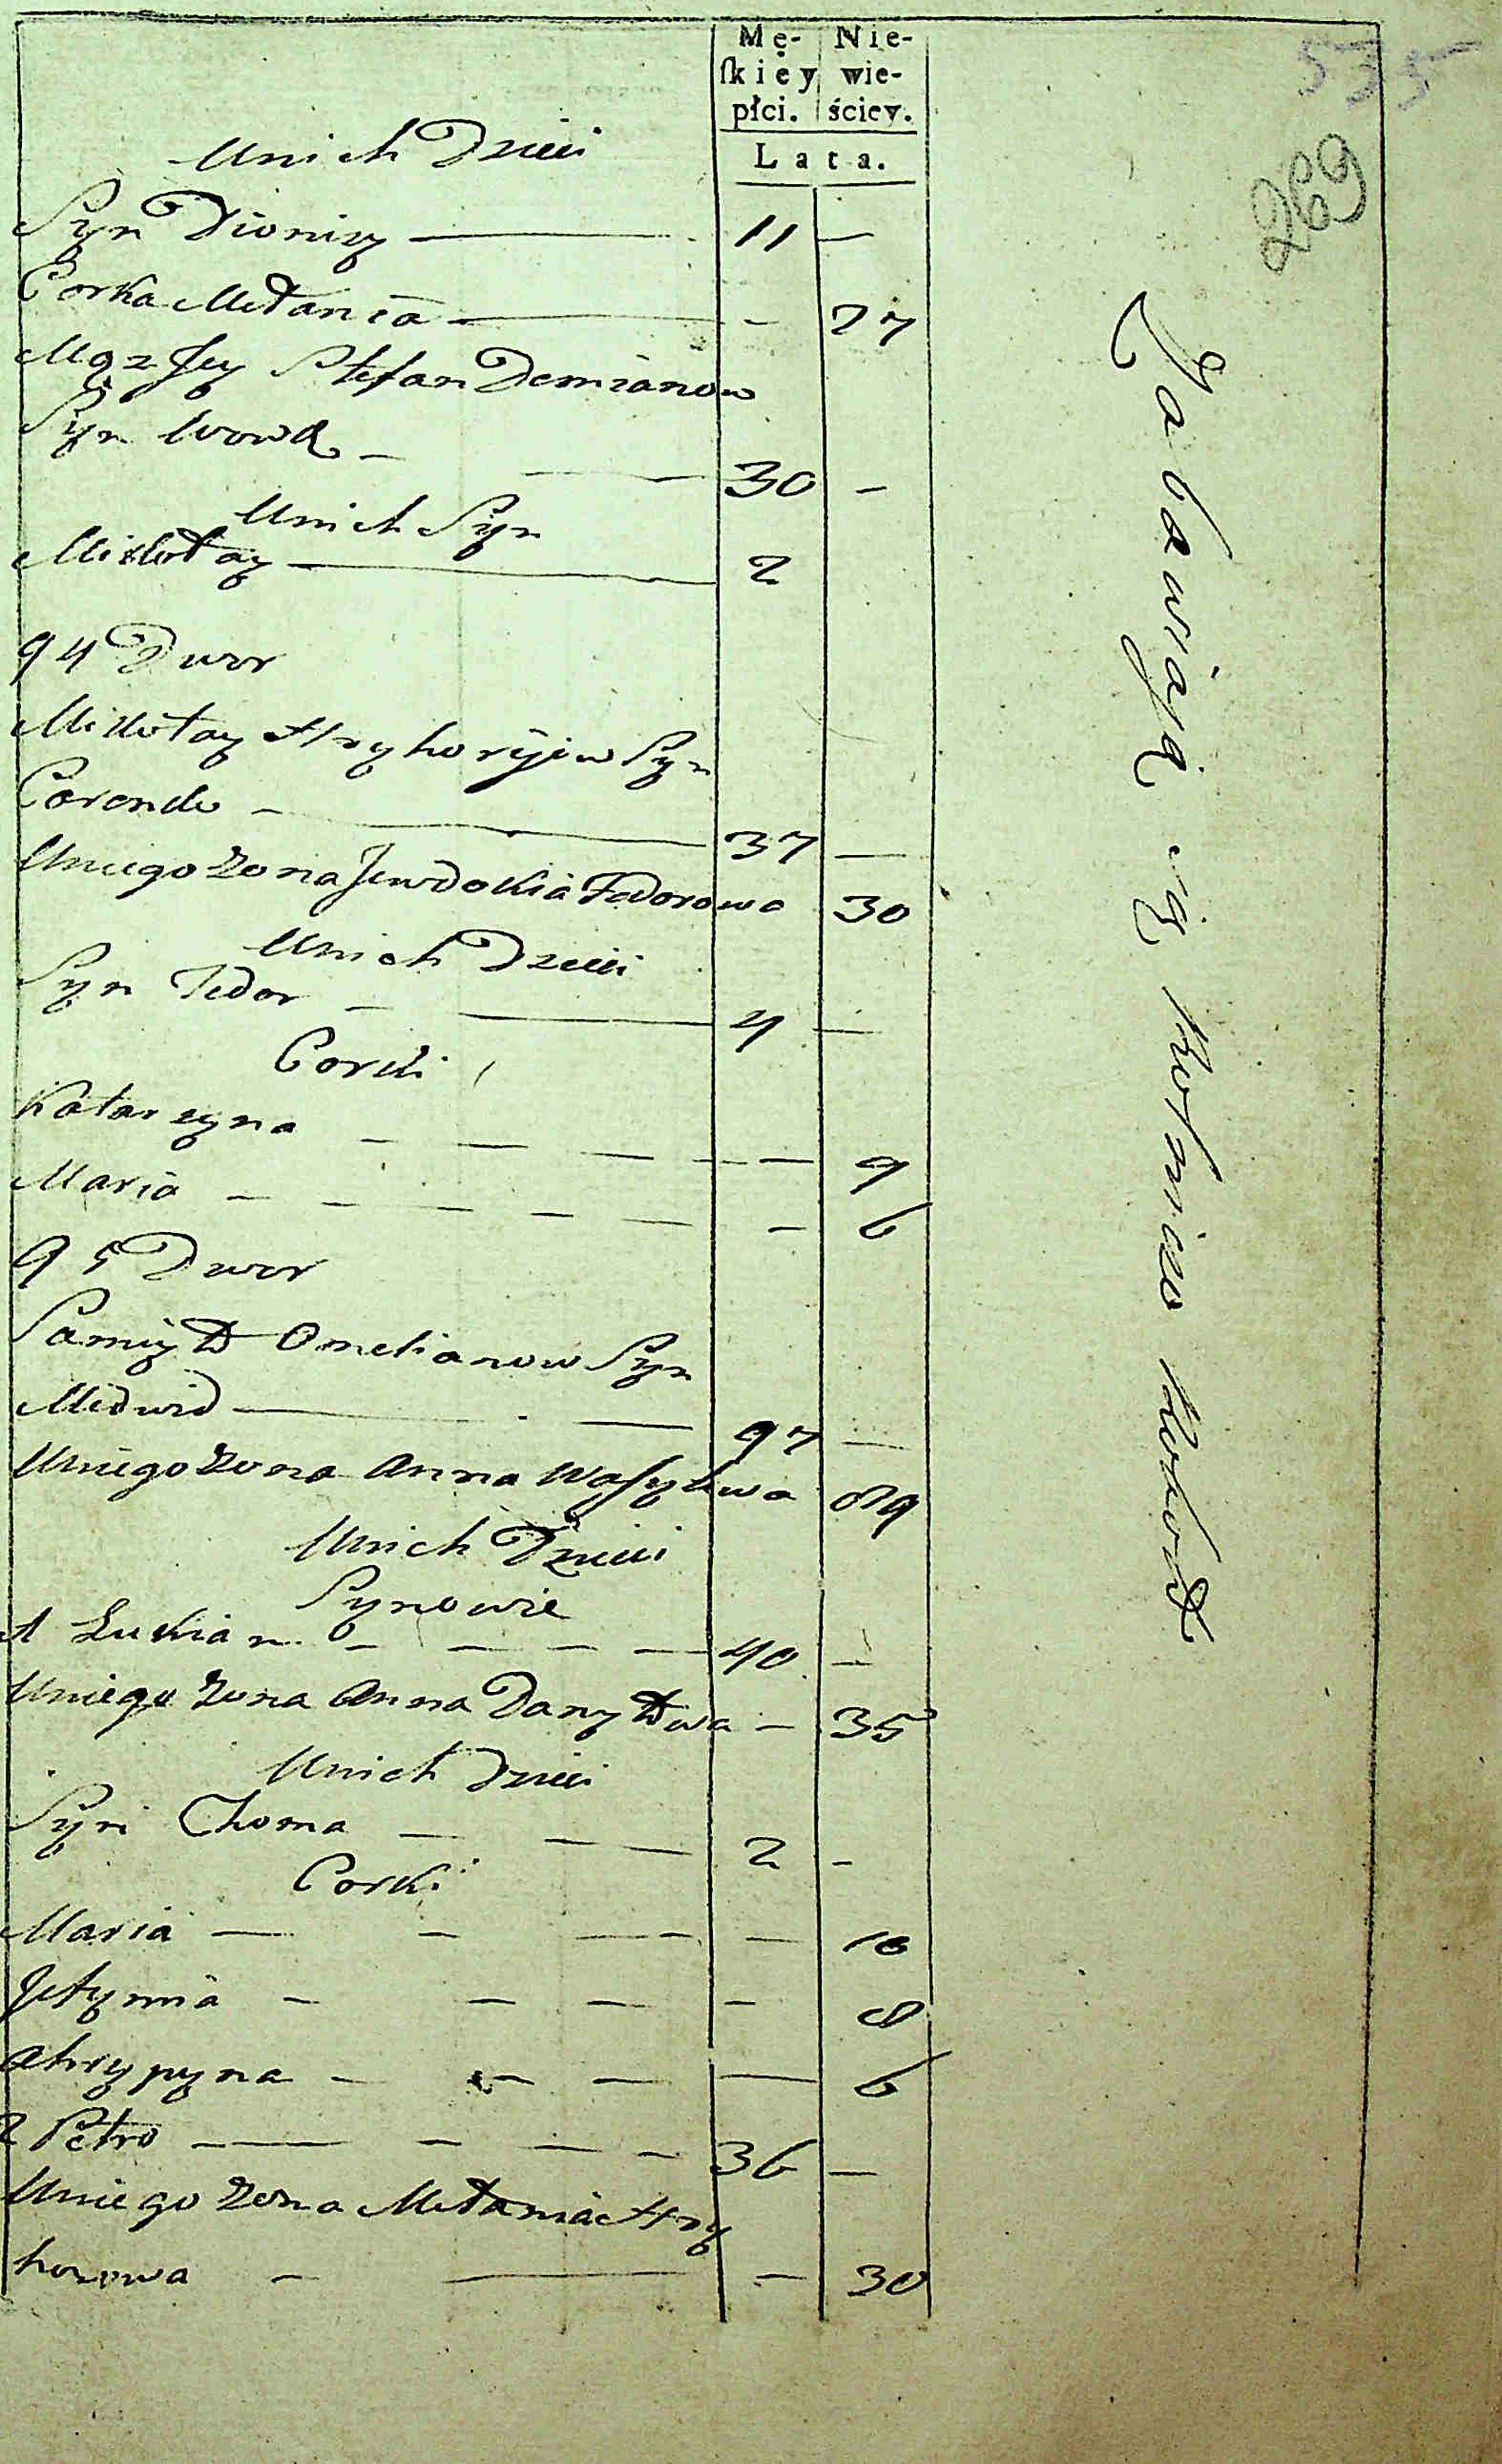 Mę- Nie-
ſkiey wie-
płci. ściey.
Lata.
535
269
Unich Dzieci
Syn Dionizy — 11 —
Corka Mełania — - 27
Mąz Jey Stefan Demianow
Syn Wowk — 30 -
Unich Syn
Mikołay — 2
94 Dwor
Mikołay Hryhoryiew Syn
— 37 —
Uniego Zona Jewdokia Fedorowa 30
Unich Dzieci
Syn Fedor — 4 —
Corki
Katarzyna — 9
Maria — 6
95 Dwor
Samiyło Omelianow Syn
Medwid — 97 —
Uniego Zona Anna Wasylowa 89
Unich Dzieci
Synowie
1 Łukian — 40 —
Uniego Zona Anna Danyłowa — 35
Unich Dzieci
Syn Choma — 2 -
Corki
Maria — 10
Jełymia — 8
Ahrypyna — 6
2 Petro — 36 —
Uniego Zona Mełania Hry
horowa — 30
Zabawiaią się Rolnictwo